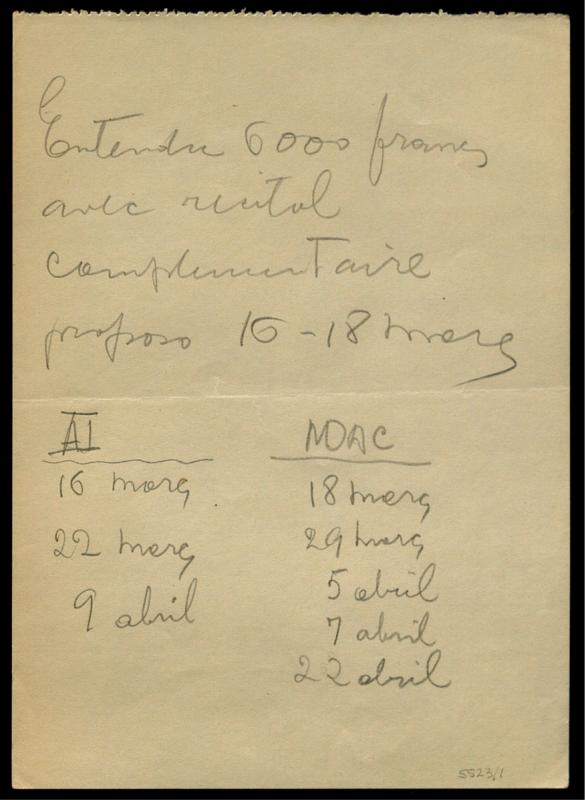 Entendu 6000 francs
avec recital
complementaire
proposo 16-18 març
AI
16 març
22 març
9 abril
NDAC
18 març
29 març
5 abril
7 abril
22 abril
5523/1